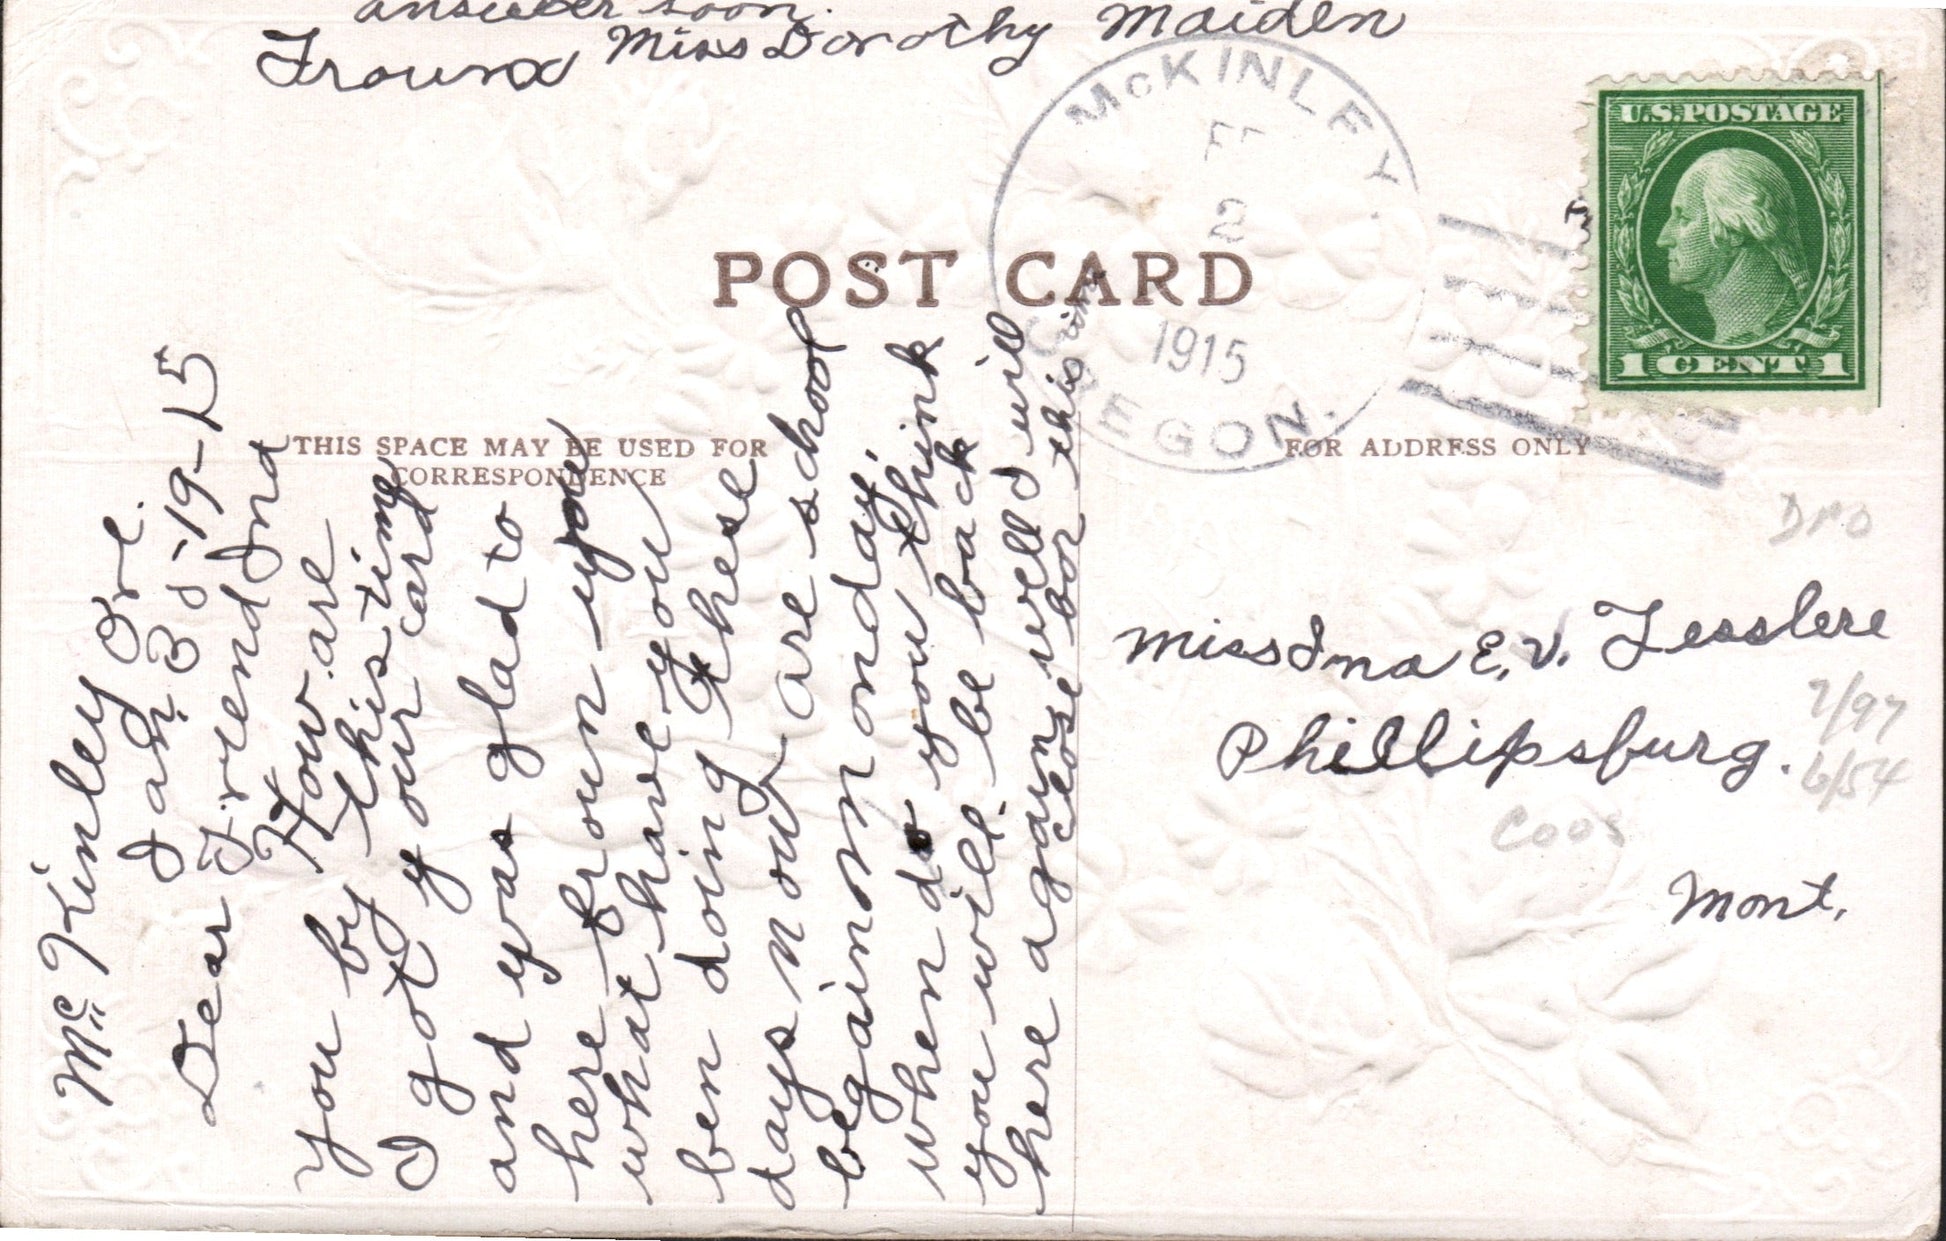 Mc Kinley Ore.
Jan. 30-19-15
Dear Freiend Ina
How are
you by this time
I got your card
and was glad to
here from you
what have you
ben doing these
days now are school
begain monday,
when do you think
you will be back
here again well I will
close for this time
answer soon.
From Miss Dorothy Maiden
POST CARD
THIS SPACE MAY BE USED FOR
CORRESPONDENCE
FOR ADDRESS ONLY
McKINLEY.
FE
2
1915
OREGON.
U.S. POSTAGE
1 CENT 1
DPO
Miss Ina E. V.
Phillipsburg.
7/97
6/54
Coos
Mont.